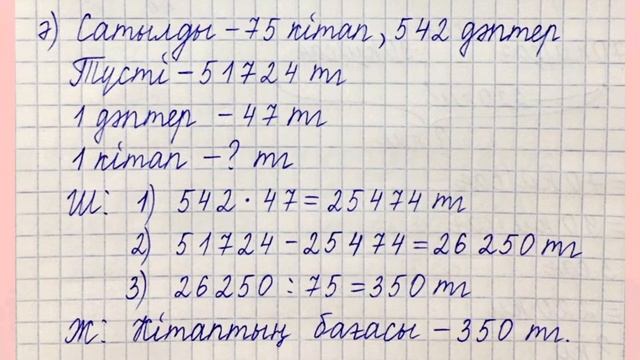 ә) Сатылды – 75 кітап, 542 дәптер
Түсті – 51724 тг
1 дәптер – 47 тг
1 кітап – ? тг
Ш: 1) 542 · 47 = 25474 тг
2) 51724 – 25474 = 26 250 тг
3) 26250 : 75 = 350 тг
Ж: Кітаптың бағасы – 350 тг.